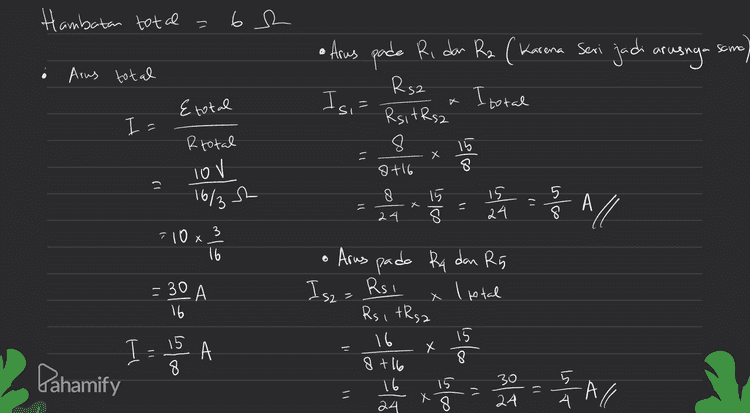 Hambatan total = 6 Ω
• Arus total
I = Etotal / Rtotal
= 10 V / 16/3 Ω
= 10 x 3/16
= 30/16 A
I = 15/8 A
• Arus pada R1 dan R2 (Karena seri jadi arusnya sama)
Is1 = Rs2 / Rs1+Rs2 x Itotal
= 8 / 8+16 x 15/8
= 8/24 x 15/8 = 15/24 = 5/8 A //
• Arus pada R4 dan R5
Is2 = Rs1 / Rs1+Rs2 x Itotal
= 16 / 8+16 x 15/8
= 16/24 x 15/8 = 30/24 = 5/4 A //
Pahamify